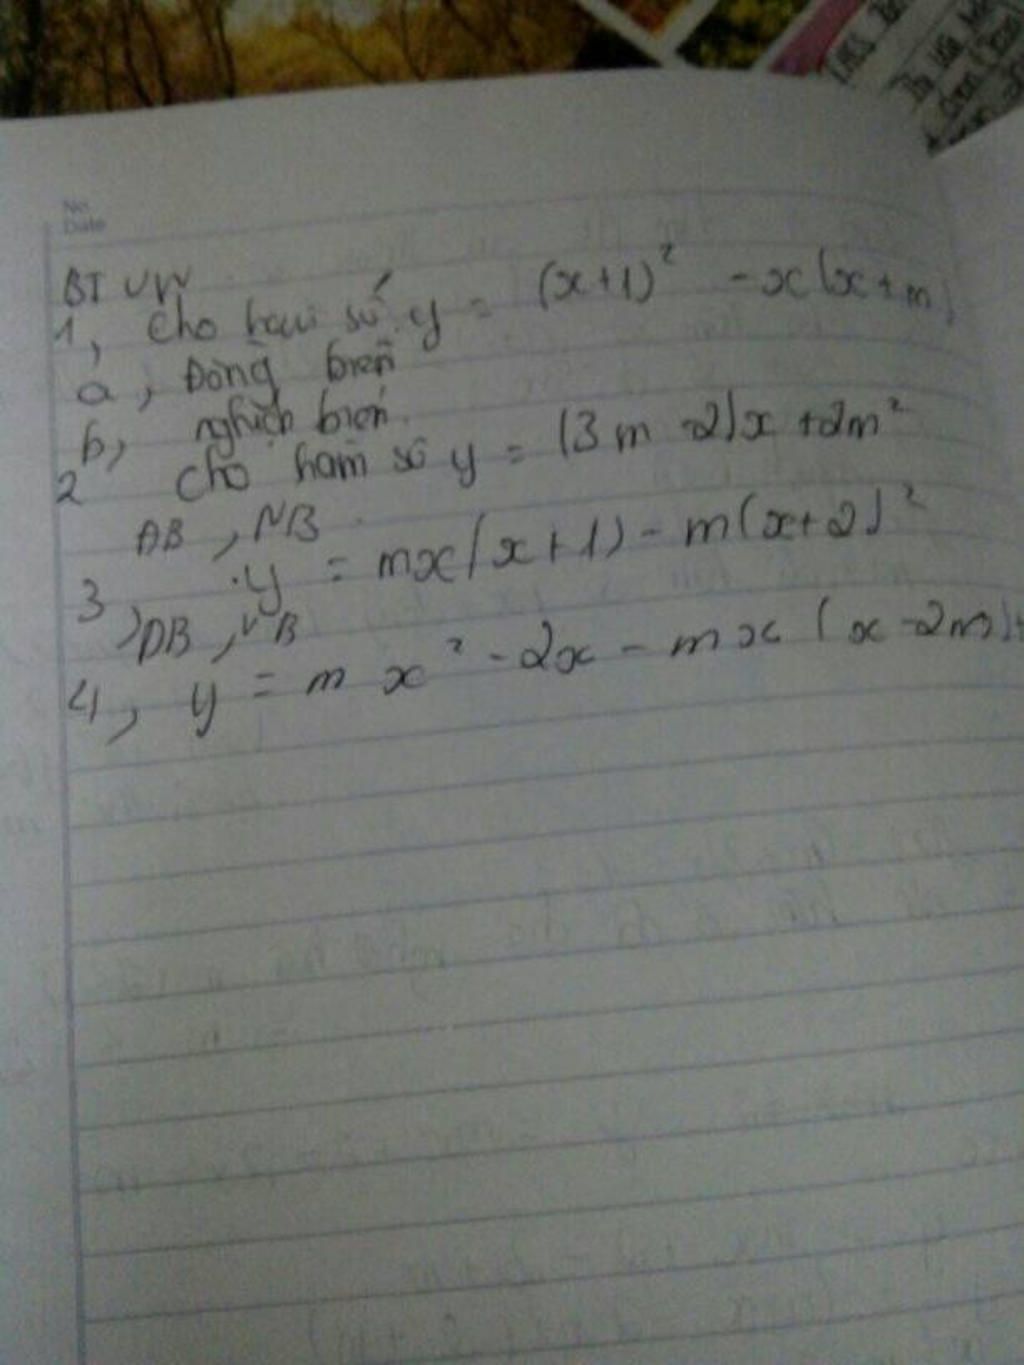 No.
Date
BT VN
1, Cho hàm số y = (x+1)² - x(x+m)
a, Đồng biến
b, nghịch biến.
2 Cho hàm số y = (3m-2)x +2m²
ĐB, NB
3, y = mx(x+1) - m(x+2)²
ĐB, NB
4, y = mx² - 2x - mx (x-2m)+